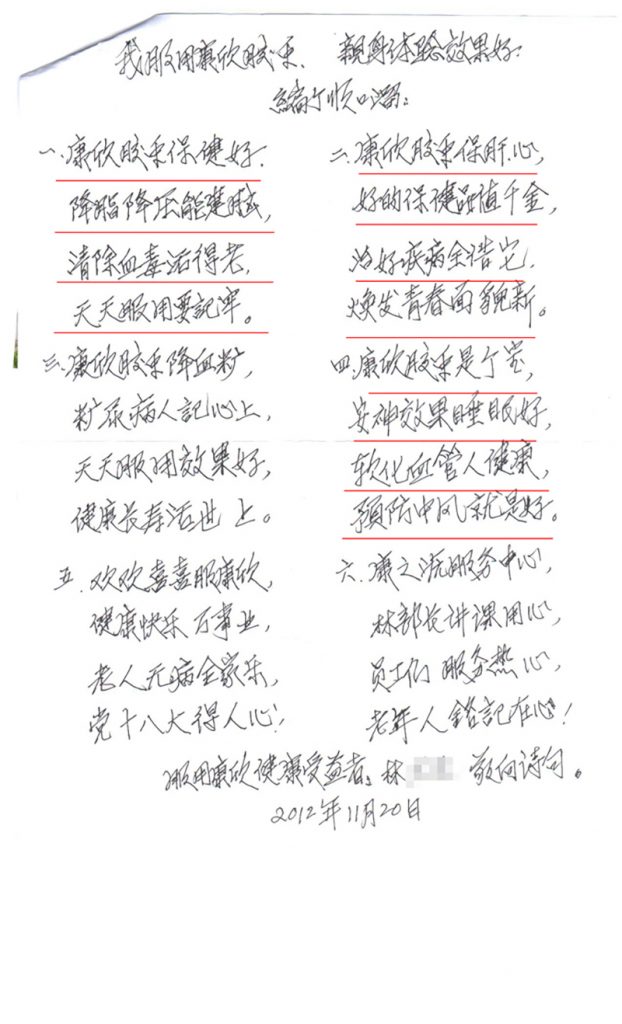 我服用康欣胶束、亲身体验效果好:
编个顺口溜:
一、康欣胶束保健好.
降脂降压能建赋,
清除血毒活得老,
天天服用要記牢。
二、康欣胶束保肝心,
好的保健品值千金,
治好疾病全诰它,
焕发青春面貌新。
三、康欣胶束降血粖,
粖尿病人記心上,
天天服用效果好,
健康长寿活世上。
四、康欣胶束是个宝,
安神效果睡眠好,
软化血管人健康,
预防中风就是好。
五、欢欢喜喜服康欣,
健康快乐万事业,
老人无病全家乐,
党十八大得人心!
六、康之源服务中心,
林部长讲课用心,
员工们服务热心,
老年人銘記在心!
服用康欣健康受益者,林 敬问诗句。
2012年11月20日